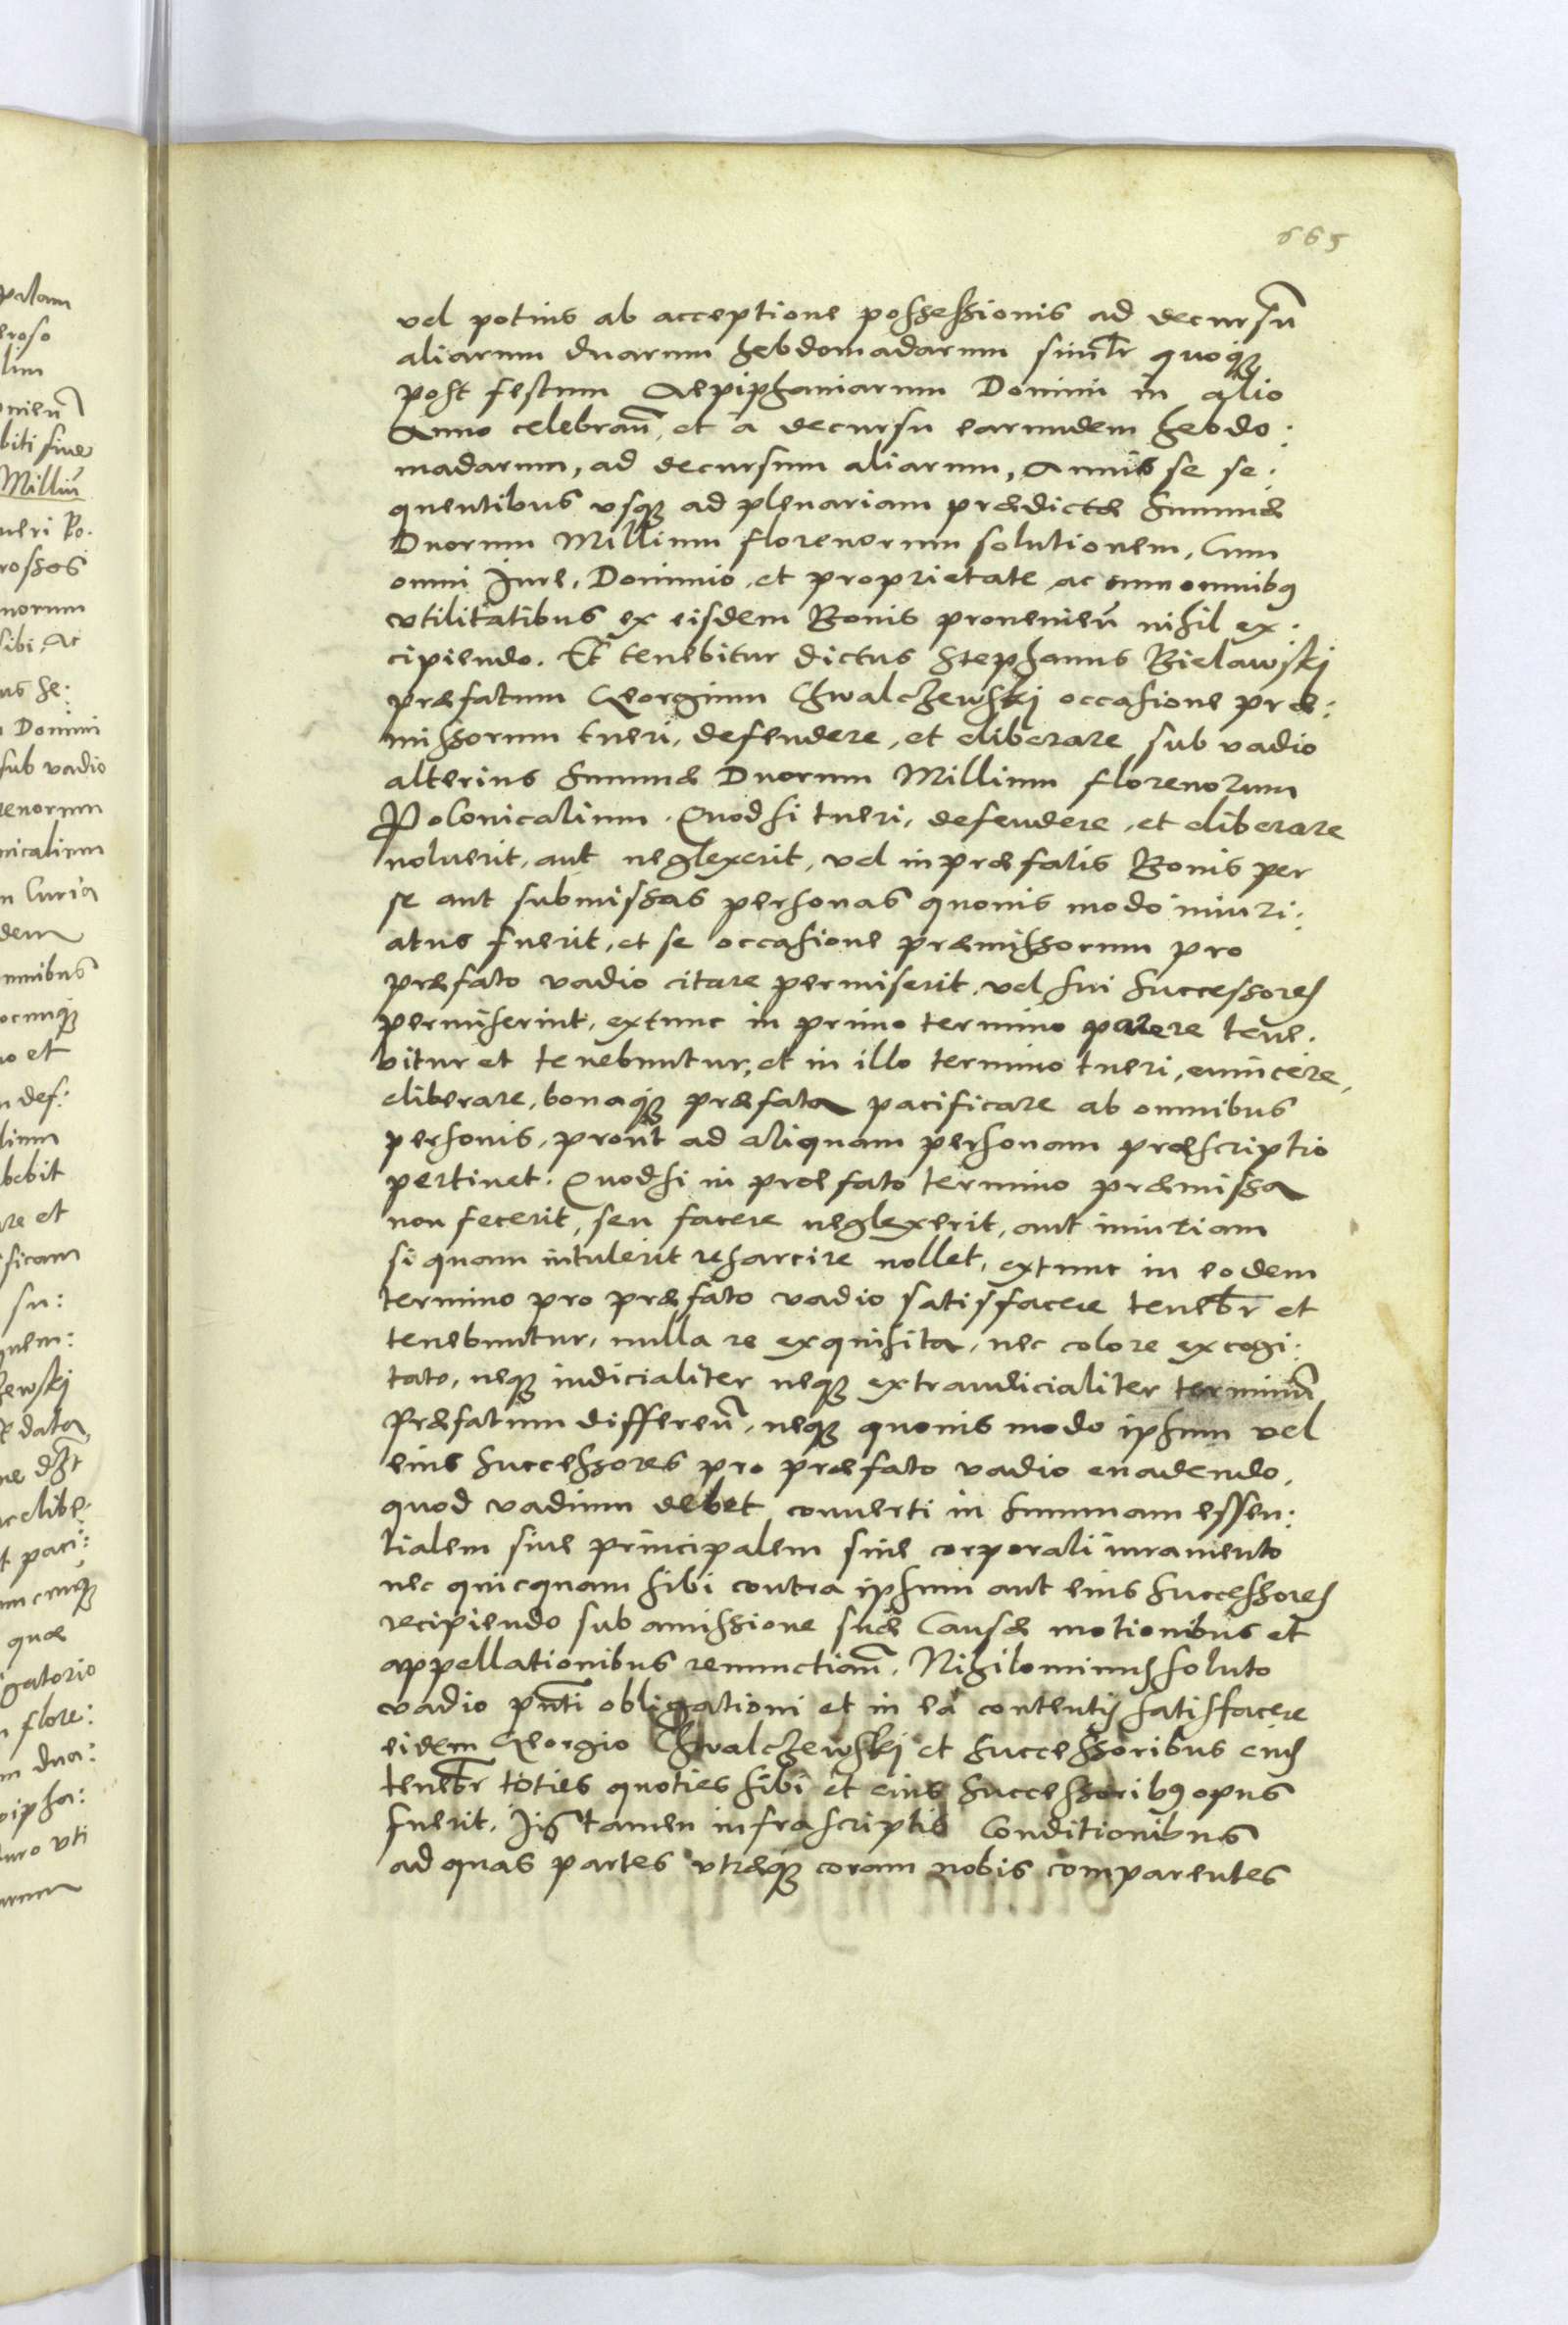 665
vel potius ab acceptione possessionis ad decursū
aliarum duarum hebdomadarum simłr quoqȝ
post festum Aepiphaniarum Domini in alio
Anno celebrań, et a decursu earundem hebdo:
madarum, ad decursum aliarum, Annis se se:
quentibus vsqȝ ad plenariam prædictæ Summæ
Duorum Millium florenorum solutionem, Cum
omni Iure, Dominio, et proprietate ac cum omnibꝰ
vtilitatibus ex eisdem Bonis prouenień nihil ex:
cipiendo. Et tenebitur dictus Stephanus Bielawskj
præfatum Georgium Chwalczewskj occasione præ:
missorum tueri, defendere, et eliberare, sub vadio
alterius Summæ Duorum Millium florenorum
Polonicalium. Quodsi tueri, defendere, et eliberare
noluerit, aut neglexerit, vel in præfatis Bonis per
se aut submissas personas quouis modo iniuri:
atus fuerit, et se occasione præmissorum pro
præfato vadio citare permiserit, vel sui Successores
permiserint, extunc in primo termino parere tene:
bitur et tenebuntur, et in illo termino tueri, euincere,
eliberare, bonaqȝ præfata pacificare ab omnibus
personis, prout ad aliquam personam præscriptio
pertinet. Quodsi in præfato termino præmissa
non fecerit, seu facere neglexerit, aut iniuriam
si quam intulerit resarcire nollet, extunc in eodem
termino pro præfato vadio satisfacere tenebr̄ et
tenebuntur, nulla re exquisita, nec colore excogi:
tato, neqȝ iudicialiter neqȝ extraudicialiter terminū
Præfatum differeń, neqȝ quouis modo ipsum vel
eius Successores pro præfato vadio euadendo,
quod vadium debet conuerti in Summam essen:
tialem siue principalem sine corporali iuramento
nec quicquam sibi contra ipsum aut eius Successores
recipiendo sub amissione suæ Causæ motionibus et
appellationibus renunctiań. Nihilominus soluto
vadio pn̄ti obligationi et in ea contentis satisfacere
eidem Georgio Chwalczewskj et Successoribus eius
tenebr̄ toties quoties sibi et eius Successoribꝰ opus
fuerit. Iis tamen infrascriptis Conditionibus
ad quas partes vtræqȝ coram nobis comparentes